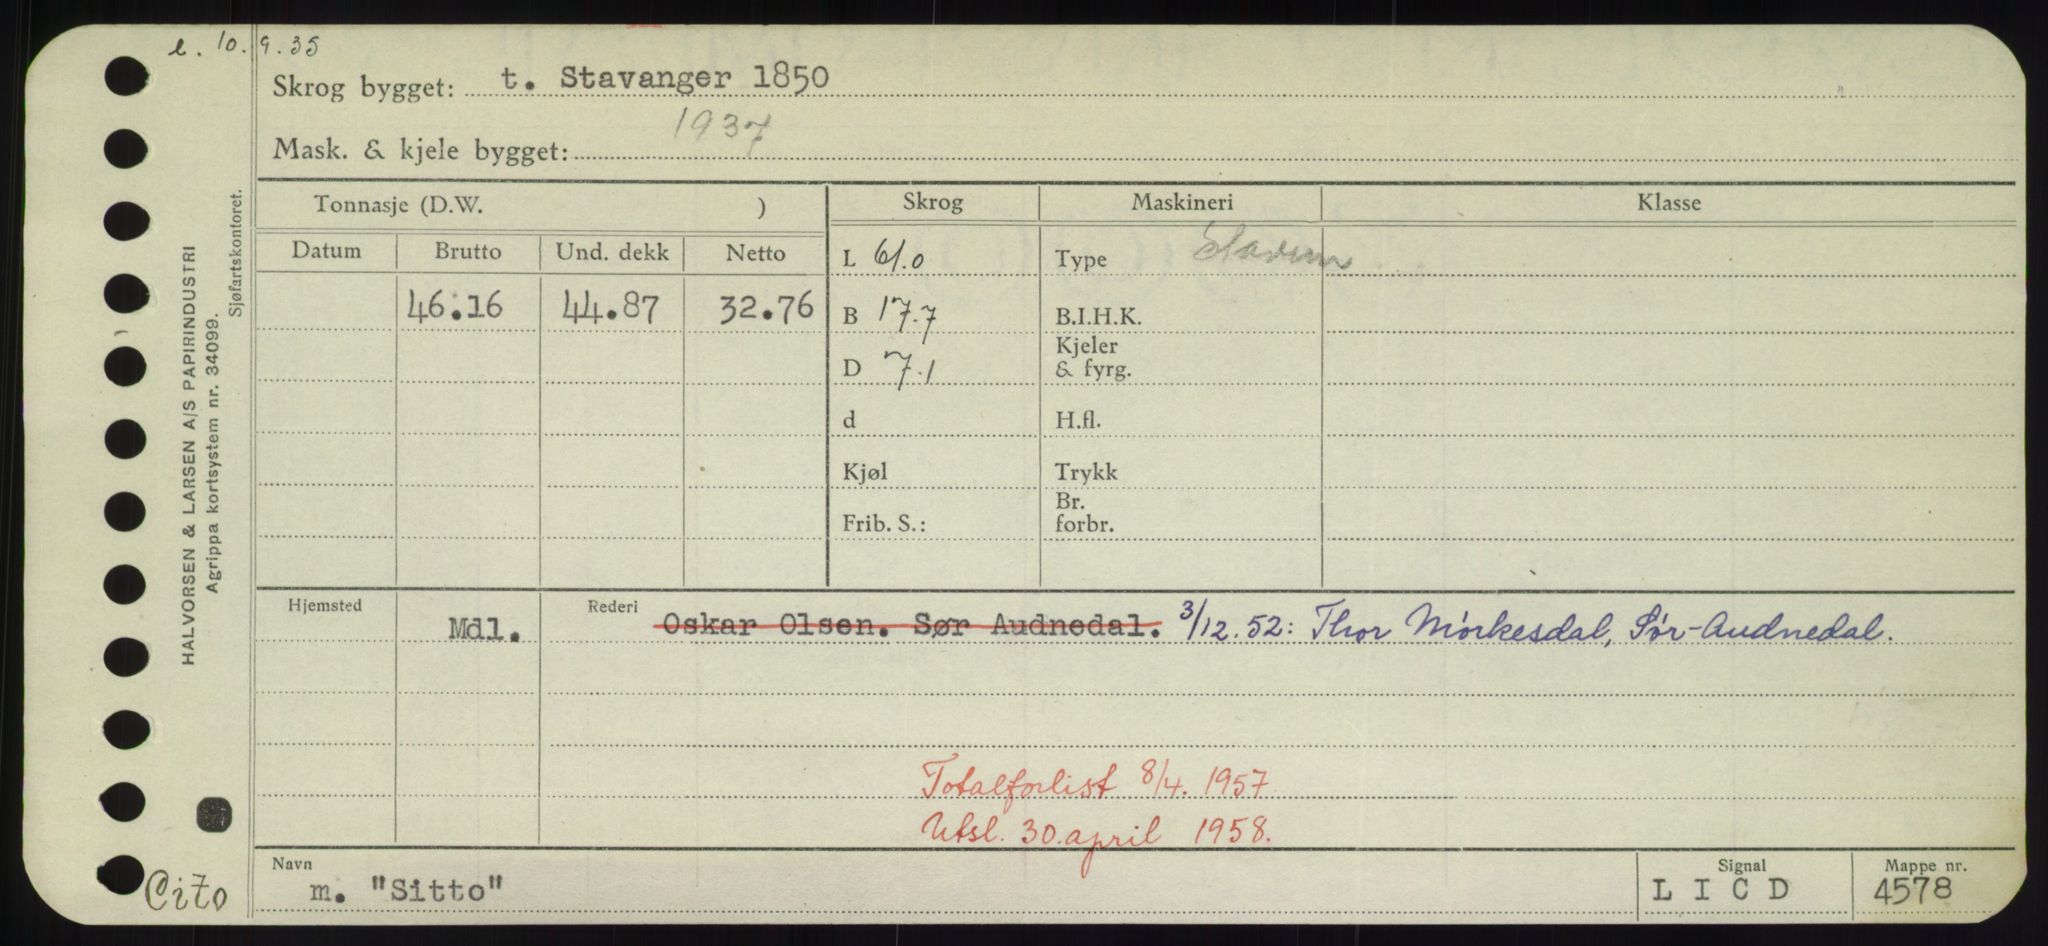 e. 10.9.35
Skrog bygget: t. Stavanger 1850
Mask. & kjele bygget: 1937
Tonnasje (D.W. )
Skrog
Maskineri
Klasse
Datum
Brutto
Und. dekk
Netto
46.16
44.87
32.76
L 61.0
B 17.7
D 7.1
d
Kjøl
Frib. S.:
Type
B.I.H.K.
Kjeler
& fyrg.
H.fl.
Trykk
Br.
forbr.
Hjemsted Mdl.
Rederi Oskar Olsen. Sør Audnedal. 3/12.52: Thor Mørkesdal, Sør-Audnedal.
Totalforlist 8/4. 1957
Utsl. 30. april 1958.
Navn
m. "Sitto"
Signal
L I C D
Mappe nr.
4578
Cito
HALVORSEN & LARSEN A/S PAPIRINDUSTRI
Agrippa kortsystem nr. 34099.
Sjøfartskontoret.